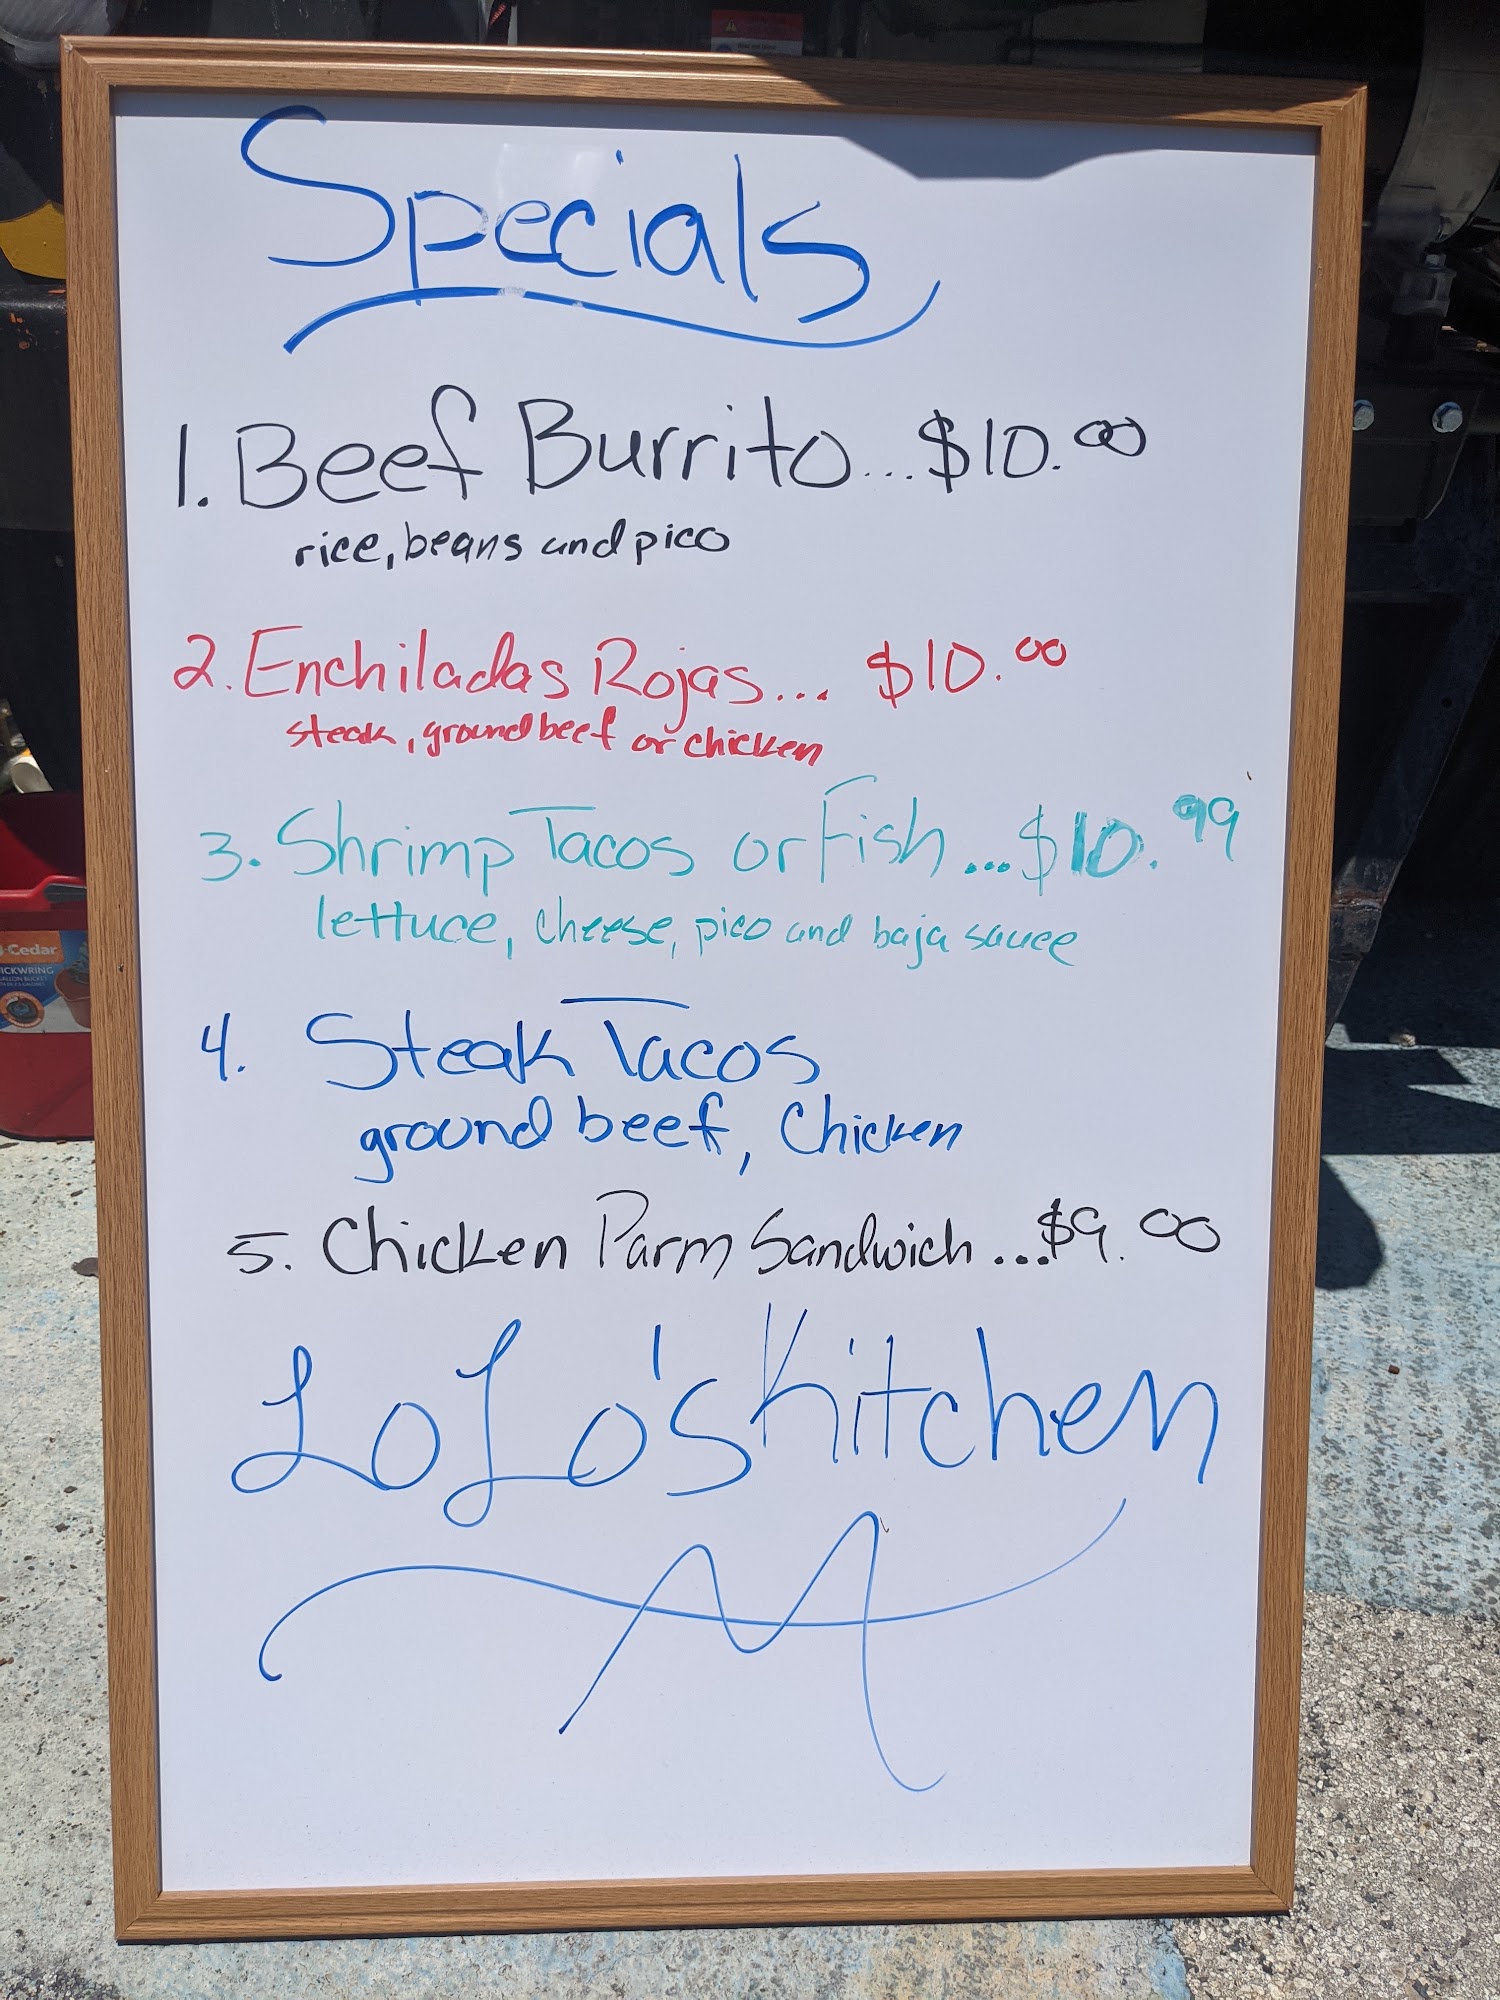 Specials
1. Beef Burrito...$10.00
rice, beans and pico
2. Enchiladas Rojas... $10.00
steak, ground beef or chicken
3. Shrimp Tacos or Fish ...$10.99
lettuce, cheese, pico and baja sauce
4. Steak Tacos
ground beef, Chicken
5. Chicken Parm Sandwich ...$9.00
LoLo's Kitchen
Cedar
ICKWRING